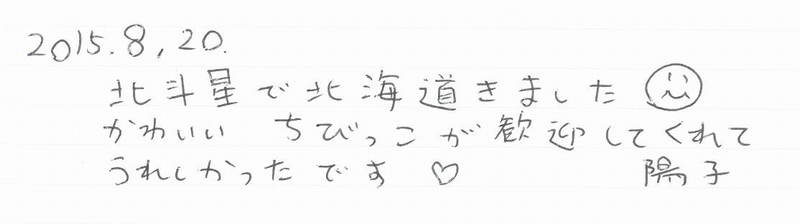 2015.8,20.
北斗星で北海道きました
かわいい ちびっこが歓迎してくれて
うれしかったです♡ 陽子